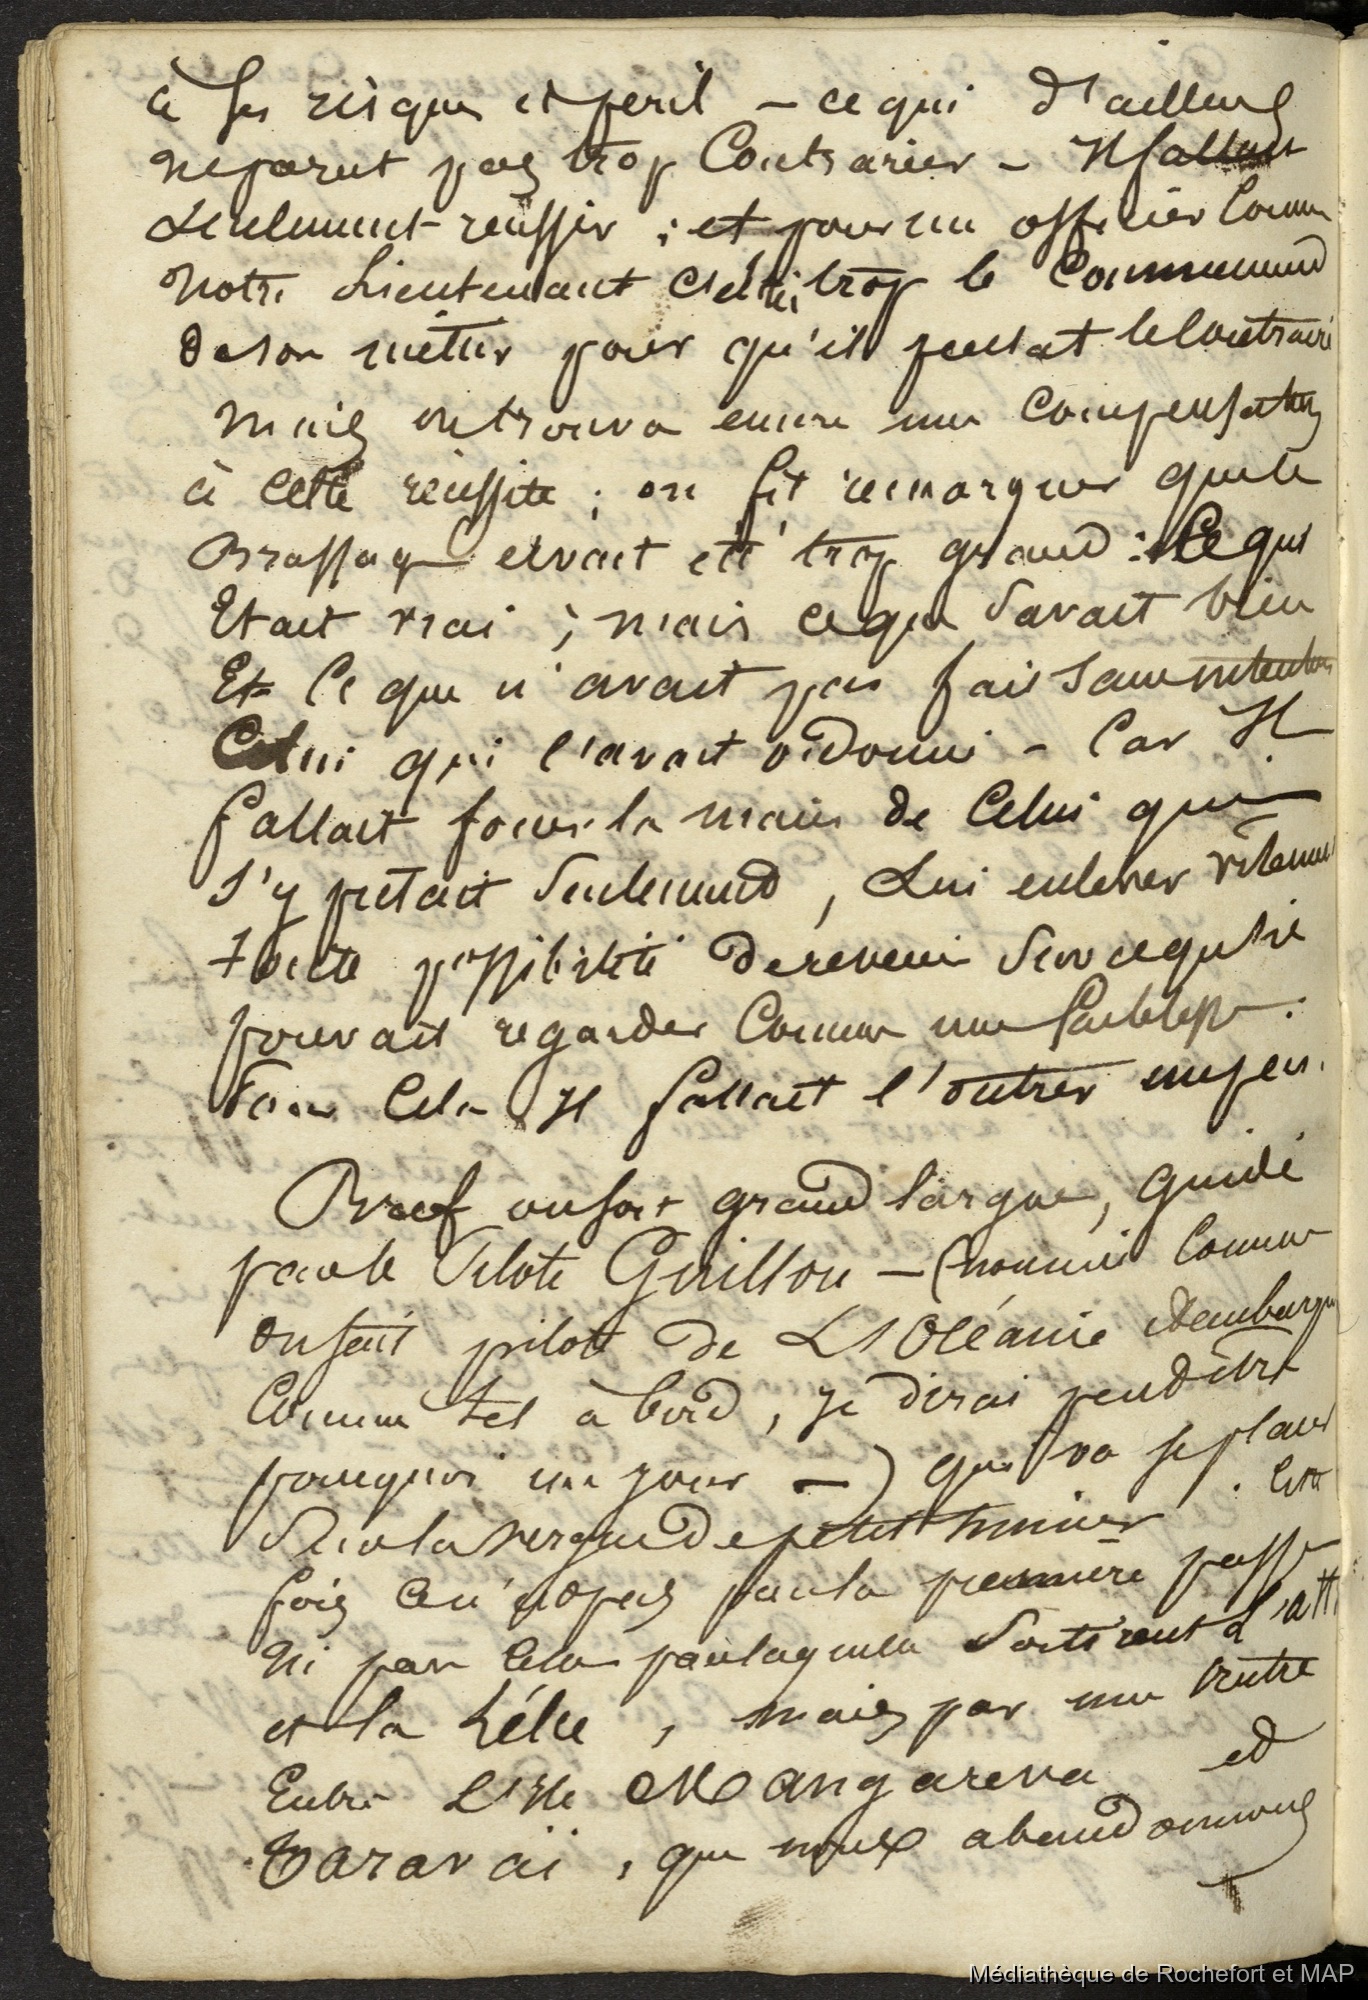 à ses risques et peril – ce qui d'ailleurs
ne parut pas trop Contrarier – Il fallait
seulement réussir ; et pour un officier Comme
notre Lieutenant C'était trop le Commencement
de son métier pour qu'il pensat le Contraire
mais on trouva encore une Compensation
à Cette réussite ; on fit remarquer que le
Brassage avait été trop grand : Ce qui
Etait vrai ; mais ce que savait bien
Et Ce que n'avait pas fait sans intention
Celui qui l'avait ordonné – Car Il
fallait sous la main de Celui qui
s'y prêtait seulement, Lui enlever vitement
toute possibilité de revenir sur ce qu'il
pouvait regarder Comme une faiblesse.
Pour Cela Il fallait l'outrer un peu.
Bref on sort grand largue, Guidé
par le Pilote Guillou – (nommé Comme
on sait pilote de L'Océanie et embarqué
Comme tel à bord, je dirai peut être
pourquoi un jour –) qui va se placer
Sur la vergue de petit hunier. Cette
fois Ce n'est pas par la première passe
ni par Celle par laquelle sortirent L'
et la Zélée, mais par une autre
Entre L'Ile Mangareva et
Taravaï, que nous abandonnons
Médiathèque de Rochefort et MAP